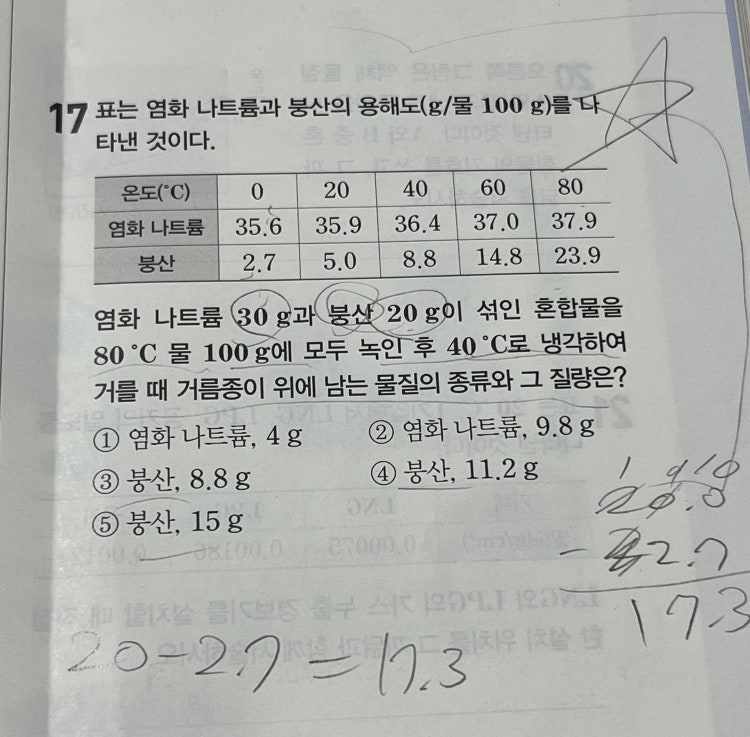 17 표는 염화 나트륨과 붕산의 용해도(g/물 100 g)를 나
타낸 것이다.
온도(°C) 0 20 40 60 80
염화 나트륨 35.6 35.9 36.4 37.0 37.9
붕산 2.7 5.0 8.8 14.8 23.9
염화 나트륨 30 g과 붕산 20 g이 섞인 혼합물을
80 °C 물 100 g에 모두 녹인 후 40 °C로 냉각하여
거를 때 거름종이 위에 남는 물질의 종류와 그 질량은?
① 염화 나트륨, 4 g ② 염화 나트륨, 9.8 g
③ 붕산, 8.8 g ④ 붕산, 11.2 g
⑤ 붕산, 15 g
1 9 10
20.0
- 2.7
17.3
20-2.7=17.3